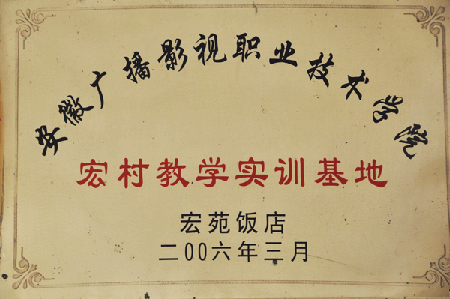 安徽广播影视职业技术学院
宏村教学实训基地
宏苑饭店
二00六年三月